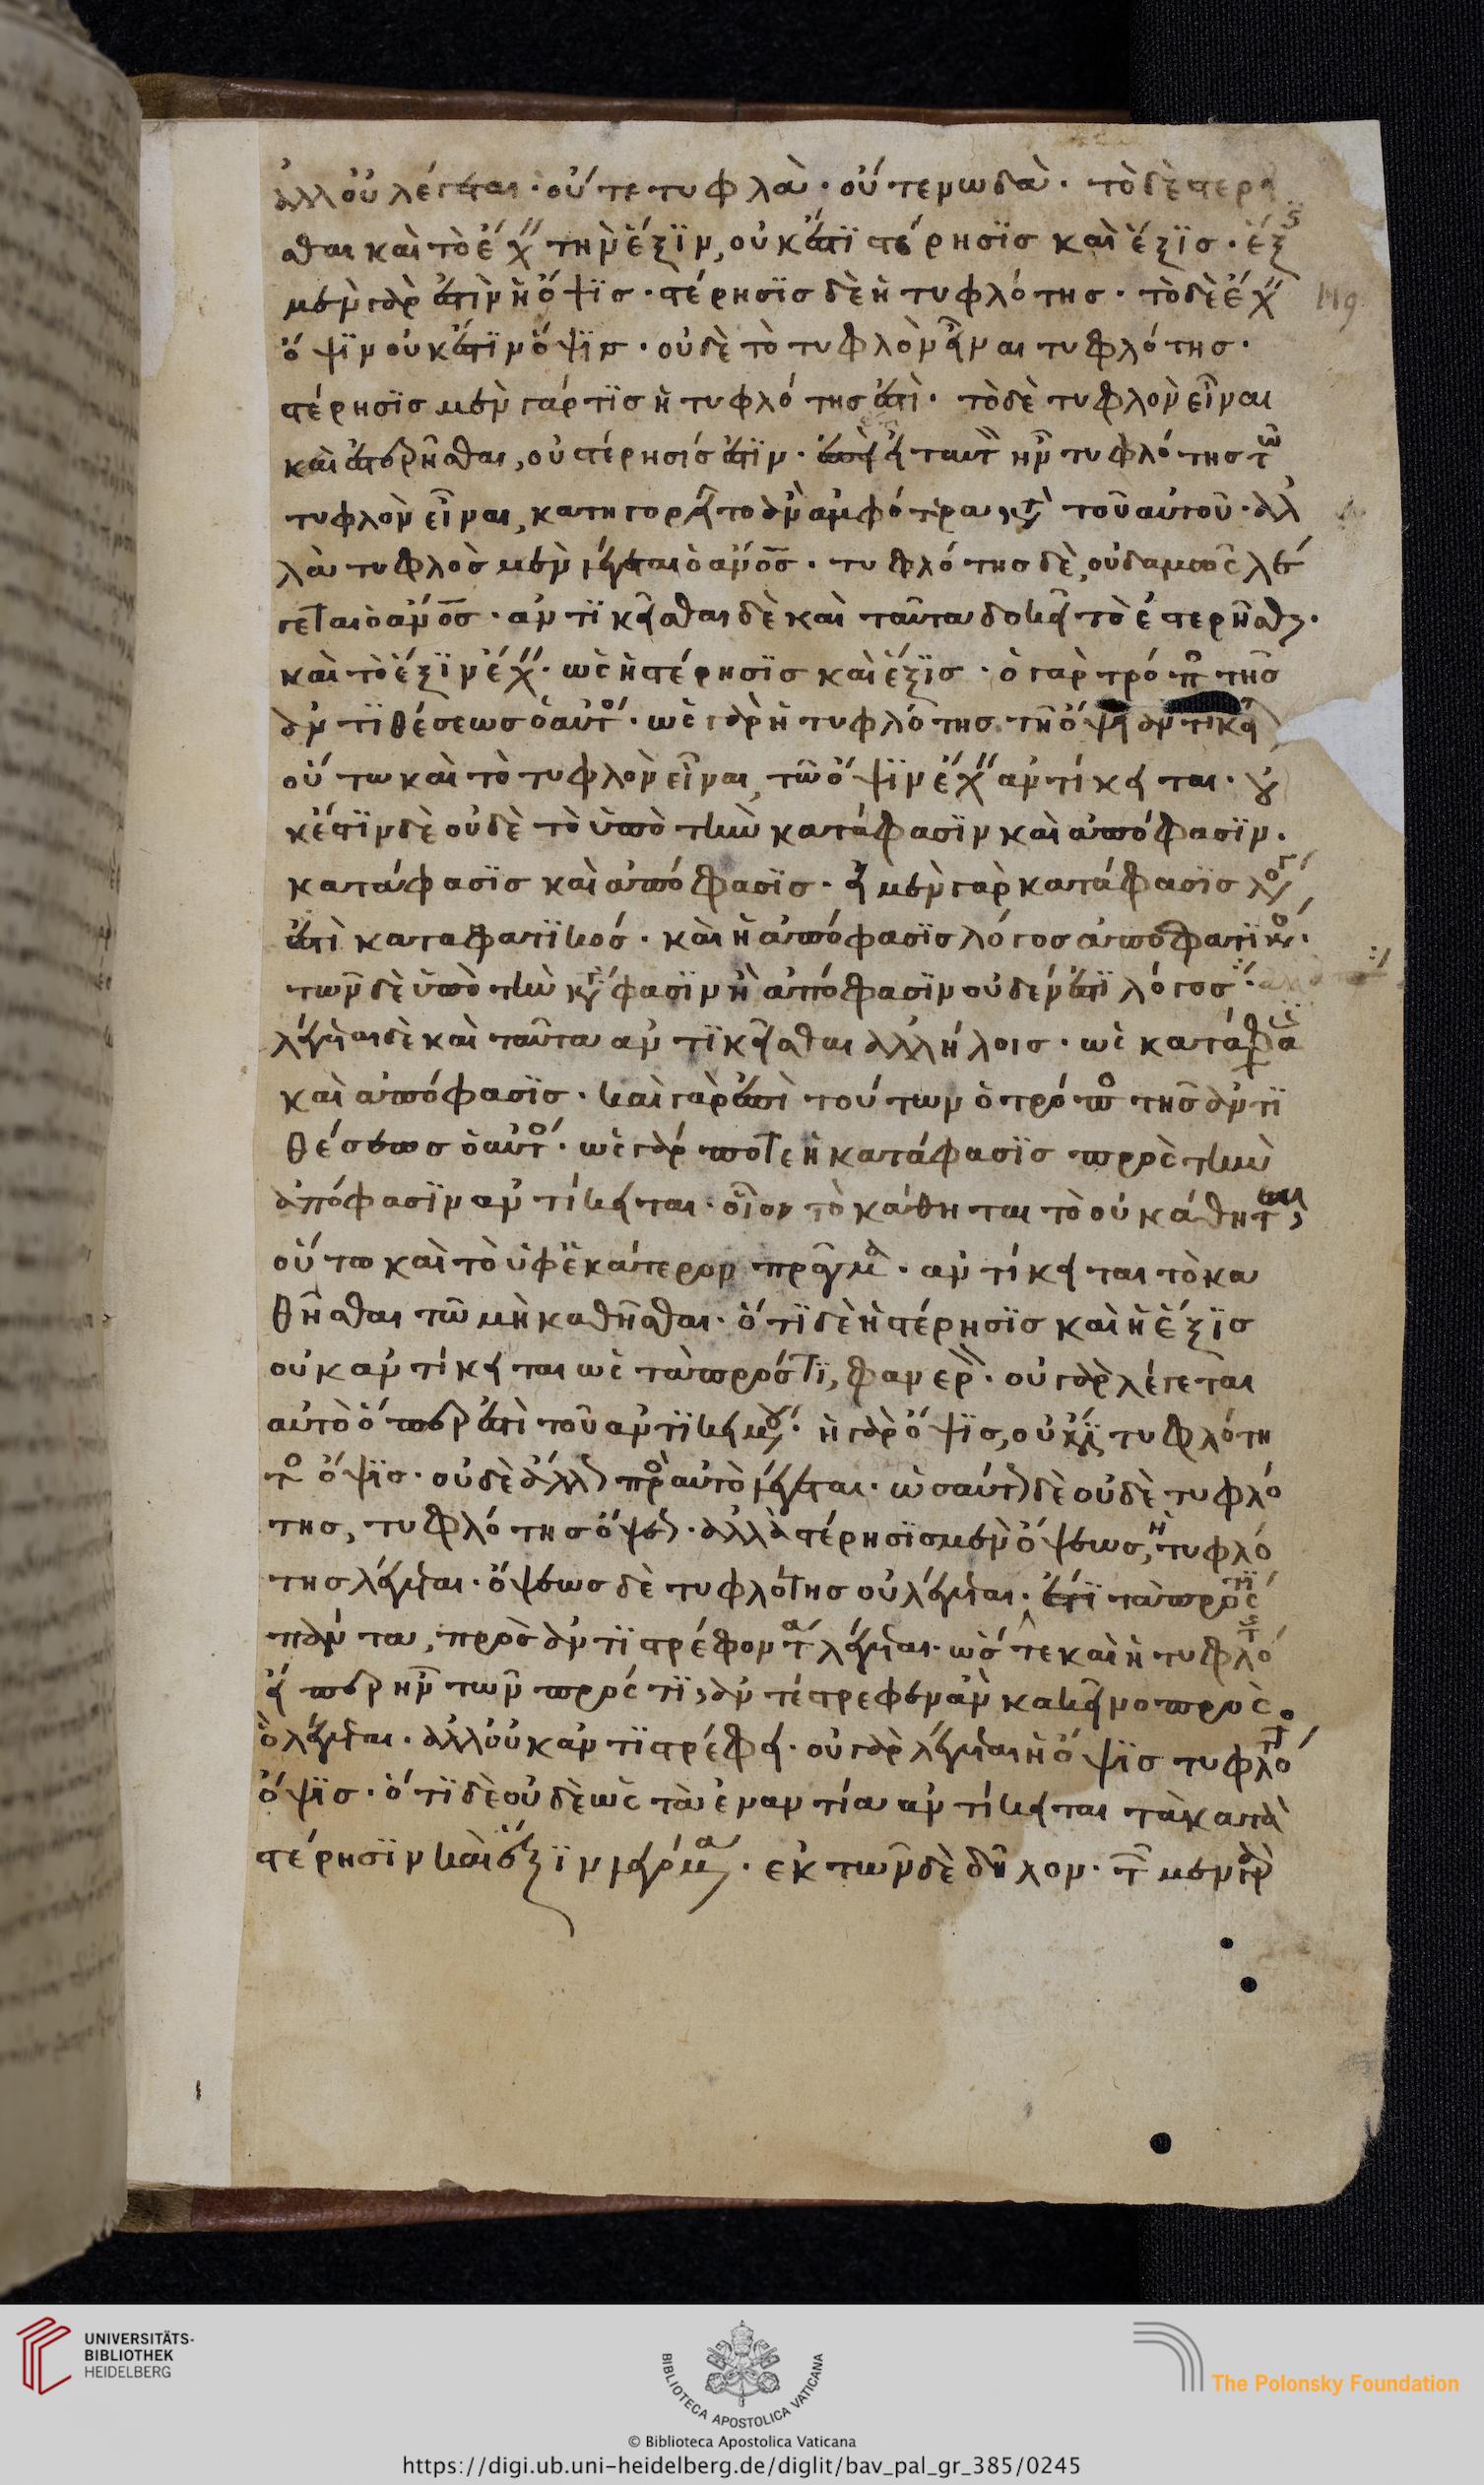 ἀλλ οὐ λέγεται· οὔτε τυφλὰ· οὔτε νωδὰ· τὸ δὲ ἐστερῆ
σθαι καὶ τὸ ἔχειν τὴν ἕξϊν, οὐκ ἔστϊ στέρησϊς καὶ ἕξϊς· ἕξις
μὲν γὰρ ἐστὶν ἡ ὄψϊς· στέρησϊς δὲ ἡ τυφλότης· τὸ δὲ ἔχειν
ὄψϊν οὐκ ἔστϊν ὄψϊς· οὐδὲ τὸ τυφλὸν εἶναι τυφλότης·
στέρησϊς μὲν γάρ τϊς ἡ τυφλότης ἐστὶ· τὸ δὲ τυφλὸν εἶναι
καὶ ἐστερῆσθαι, οὐ στέρησίς ἐστϊν· εἰ ταυτὸν ἦν τυφλότης τῶ
τυφλὸν εἶναι, κατηγορεῖτο ἂν ἀμφότερα κατὰ τοῦ αὐτοῦ· ἀλ
λὰ τυφλὸς μὲν λέγεται ὁ ἄνος· τυφλότης δὲ, οὐδαμῶς λέ
γεται ὁ ἄνος· ἀντϊκεῖσθαι δὲ καὶ ταῦτα δοκεῖ τὸ ἐστερῆσθαι·
καὶ τὸ ἕξϊν ἔχειν· ὡς ἡ στέρησϊς καὶ ἕξϊς· ὁ γὰρ τρόπος τῆς
ἀντϊθέσεως ὁ αὐτός· ὡς γὰρ ἡ τυφλότης τῆ ὄψει ἀντικει
οὕτω καὶ τὸ τυφλὸν εἶναι, τῶ ὄψϊν ἔχειν ἀντίκειται· οὐ
κ ἔστϊν δὲ οὐδὲ τὸ ὑπὸ τὴν κατάφασϊν καὶ ἀπόφασϊν·
κατάφασϊς καὶ ἀπόφασϊς· ἡ μὲν γὰρ κατάφασϊς λόγος
ἐστὶ καταφατϊκός· καὶ ἡ ἀπόφασϊς λόγος ἀποφατϊκός·
τῶν δὲ ὑπὸ τὴν κατάφασϊν ἢ ἀπόφασϊν οὐδέν ἐστϊ λόγος·
λέγεται δὲ καὶ ταῦτα ἀντϊκεῖσθαι ἀλλήλοις· ὡς κατάφασϊς
καὶ ἀπόφασϊς· καὶ γὰρ ἐπὶ τούτων ὁ τρόπος τῆς ἀντϊ
θέσεως ὁ αὐτός· ὡς γάρ ποτε ἡ κατάφασϊς πρὸς τὴν
ἀπόφασϊν ἀντίκειται· οἷον τὸ κάθηται τὸ οὐ κάθηται,
οὕτω καὶ τὸ ὑφ ἑκάτερον πρᾶγμα· ἀντίκειται τὸ κα
θῆσθαι τῶ μὴ καθῆσθαι· ὅτϊ δὲ ἡ στέρησϊς καὶ ἡ ἕξϊς
οὐκ ἀντίκειται ὡς τὰ πρός τϊ, φανερὸν· οὐ γὰρ λέγεται
αὐτὸ ὅπερ ἐστὶ τοῦ ἀντϊκειμένου· ἡ γὰρ ὄψϊς, οὐκ ἔστϊ τυφλότη
τος ὄψϊς· οὐδὲ ἄλλως πρὸς αὐτὸ λέγεται· ὡσαύτως δὲ οὐδὲ τυφλό
της, τυφλότης ὄψεως· ἀλλὰ στέρησϊς μὲν ὄψεως, ἡ τυφλό
της λέγεται· ὄψεως δὲ τυφλότης οὐ λέγεται· ἔτϊ τὰ πρός τϊ
πάντα, πρὸς ἀντϊστρέφοντα λέγεται· ὥστε καὶ ἡ τυφλότης
εἴπερ ἦν τῶν πρός τϊ, ἀντέστρεφεν ἂν κἀκεῖνο πρὸς
ὃ λέγεται· ἀλλ οὐκ ἀντϊστρέφει· οὐ γὰρ λέγεται ἡ ὄψϊς τυφλότη
ὄψϊς· ὅτϊ δὲ οὐδὲ ὡς τὰ ἐναντία ἀντίκειται τὰ κατὰ
στέρησϊν καὶ ἕξϊν λεγόμενα· ἐκ τῶνδε δῆλον· τῶν μὲν γὰρ
119
UNIVERSITÄTS-
BIBLIOTHEK
HEIDELBERG
BIBLIOTECA APOSTOLICA VATICANA
© Biblioteca Apostolica Vaticana
The Polonsky Foundation
https://digi.ub.uni-heidelberg.de/diglit/bav_pal_gr_385/0245